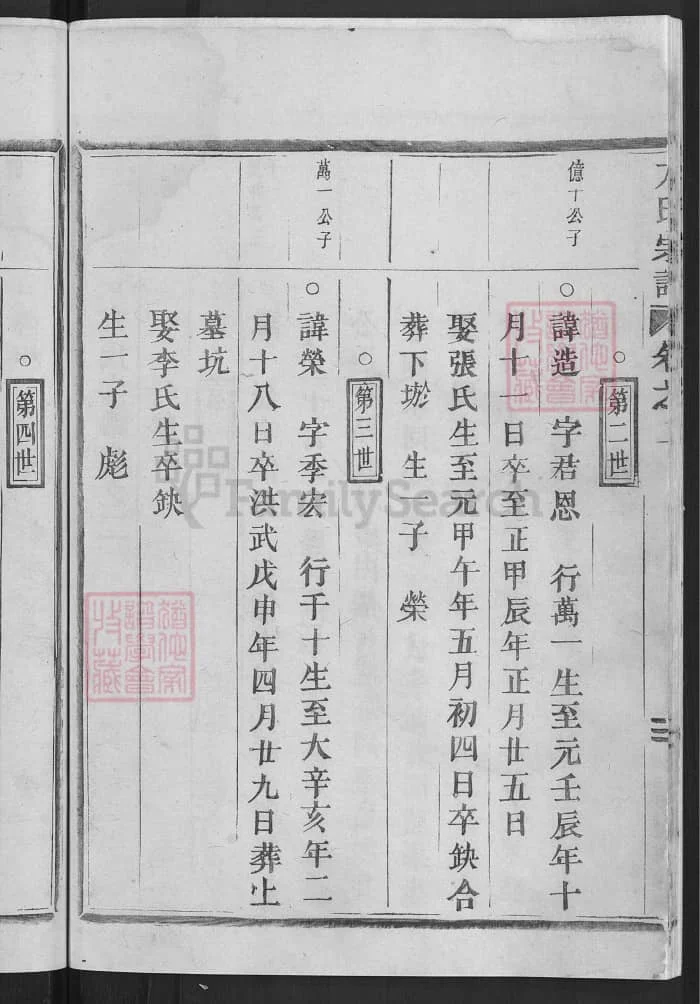 氏宗譜 卷之
第二世
億十公子
諱造 字君恩 行萬一生至元壬辰年十
月十一日卒至正甲辰年正月廿五日
娶張氏生至元甲午年五月初四日卒缺合
葬下坳 生一子 榮
第三世
萬一公子
諱榮 字季宏 行千十生至大辛亥年二
月十八日卒洪武戊申年四月廿九日葬上
墓坑
娶李氏生卒缺
生一子 彪
第四世
FamilySearch